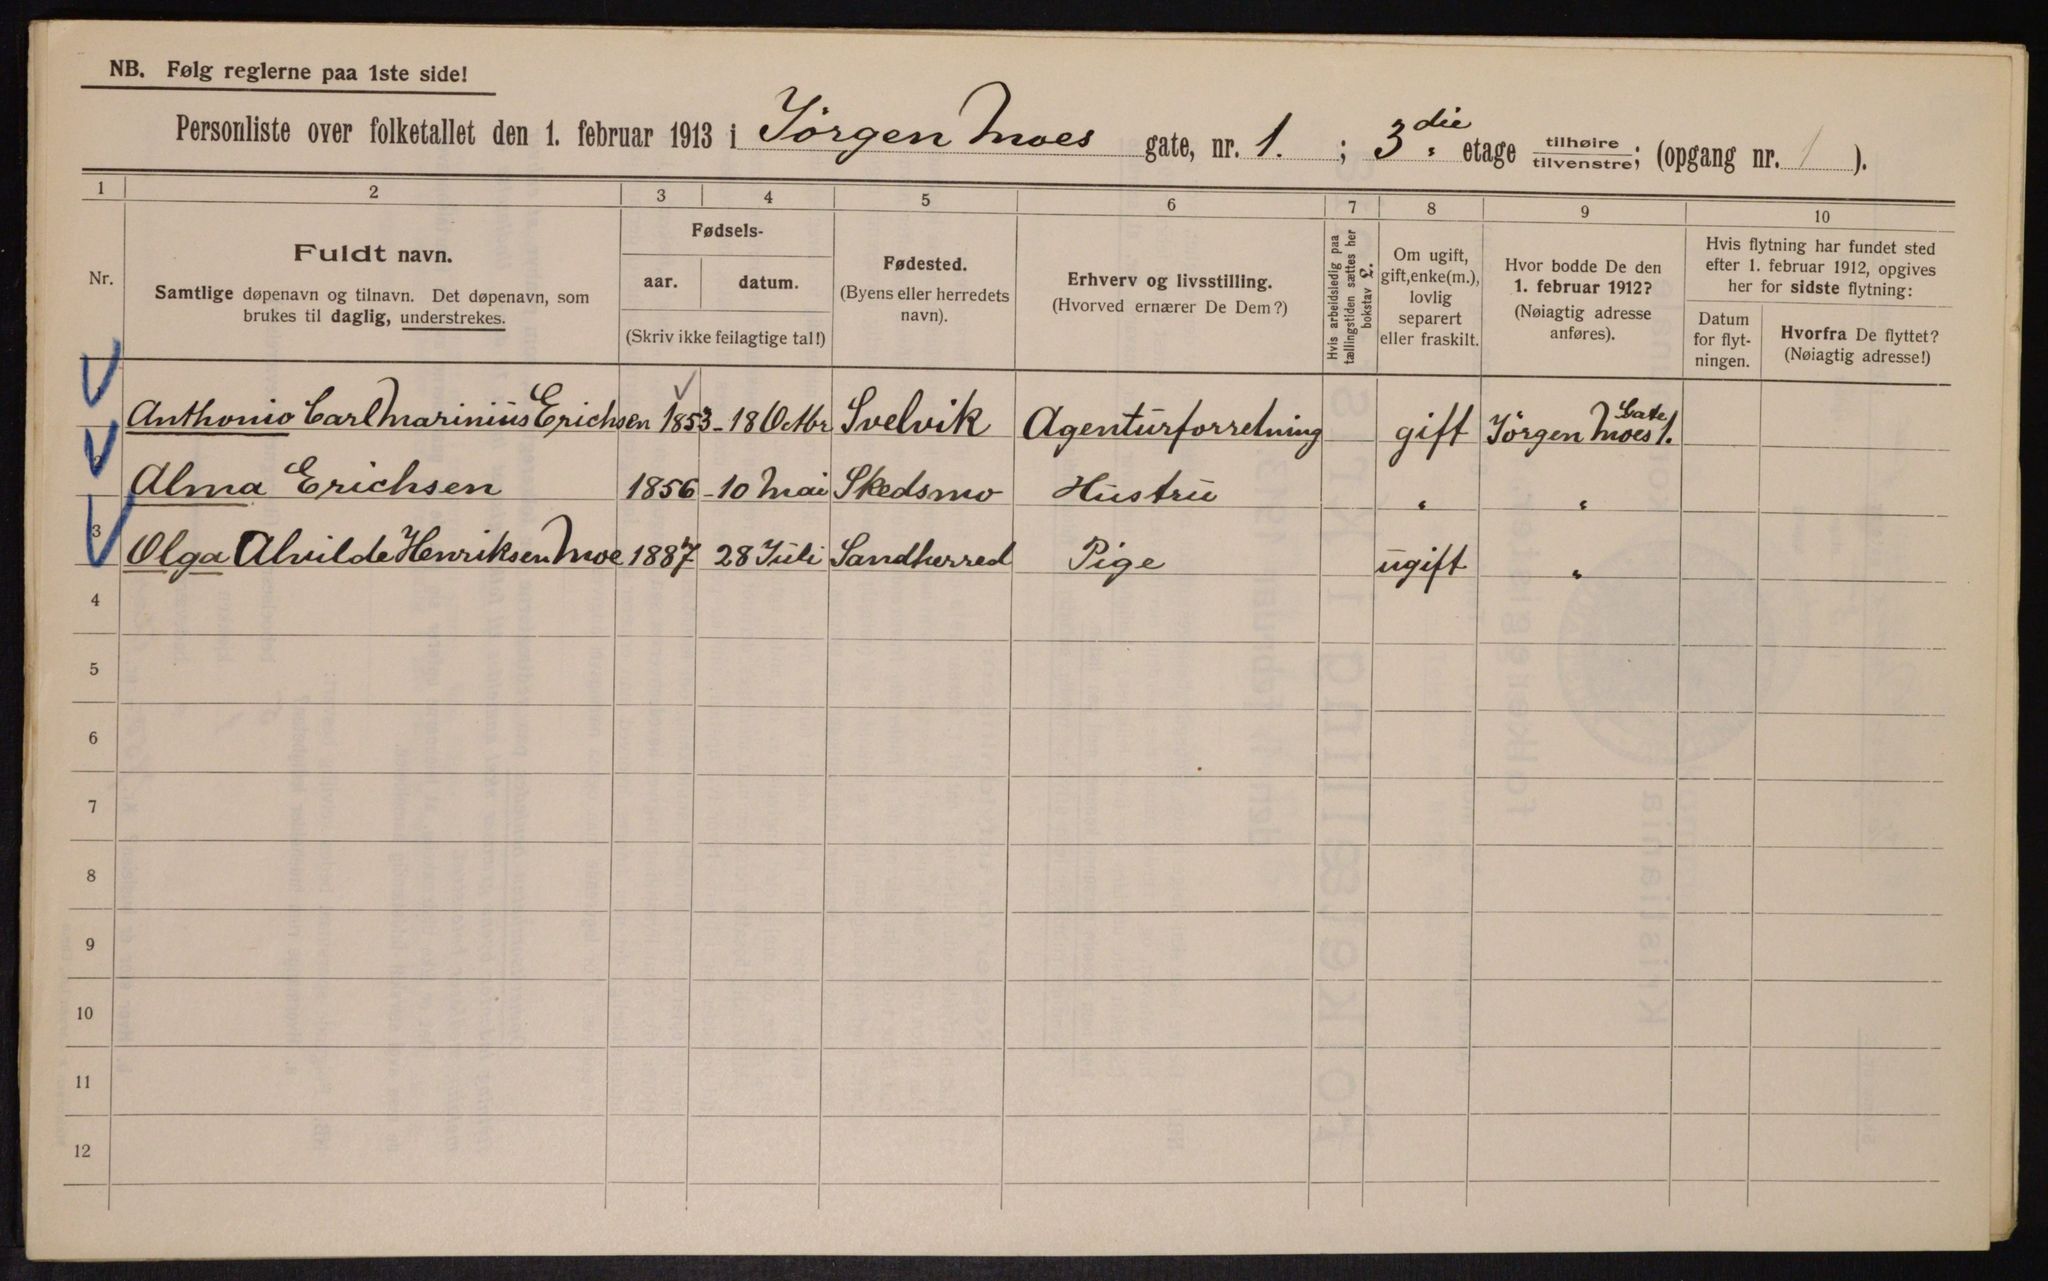 NB. Følg reglerne paa 1ste side!
Personliste over folketallet den 1. februar 1913 i Jörgen Moes gate, nr. 1. ; 3die etage tilhøire/tilvenstre; (opgang nr. 1 ).
1 2 3 4 5 6 7 8 9 10
Nr.
Fuldt navn.
Samtlige døpenavn og tilnavn. Det døpenavn, som
brukes til daglig, understrekes.
Fødsels-
aar. datum.
(Skriv ikke feilagtige tal!)
Fødested.
(Byens eller herredets
navn).
Erhverv og livsstilling.
(Hvorved ernærer De Dem?)
Hvis arbeidsledig paa
tællingstiden sættes her
bokstav L.
Om ugift,
gift, enke(m.),
lovlig
separert
eller fraskilt.
Hvor bodde De den
1. februar 1912?
(Nøiagtig adresse
anføres).
Hvis flytning har fundet sted
efter 1. februar 1912, opgives
her for sidste flytning:
Datum
for flyt-
ningen.
Hvorfra De flyttet?
(Nøiagtig adresse!)
Anthonio Carl Marinius Erichsen 1853 - 18 Octbr Svelvik Agenturforretning gift Jörgen Moes Gate 1.
2 Alma Erichsen 1856 - 10 Mai Skedsmo Hustru " "
3 Olga Alvilde Henriksen Moe 1887 28 Juli Sandherred Pige ugift "
4
5
6
7
8
9
10
11
12